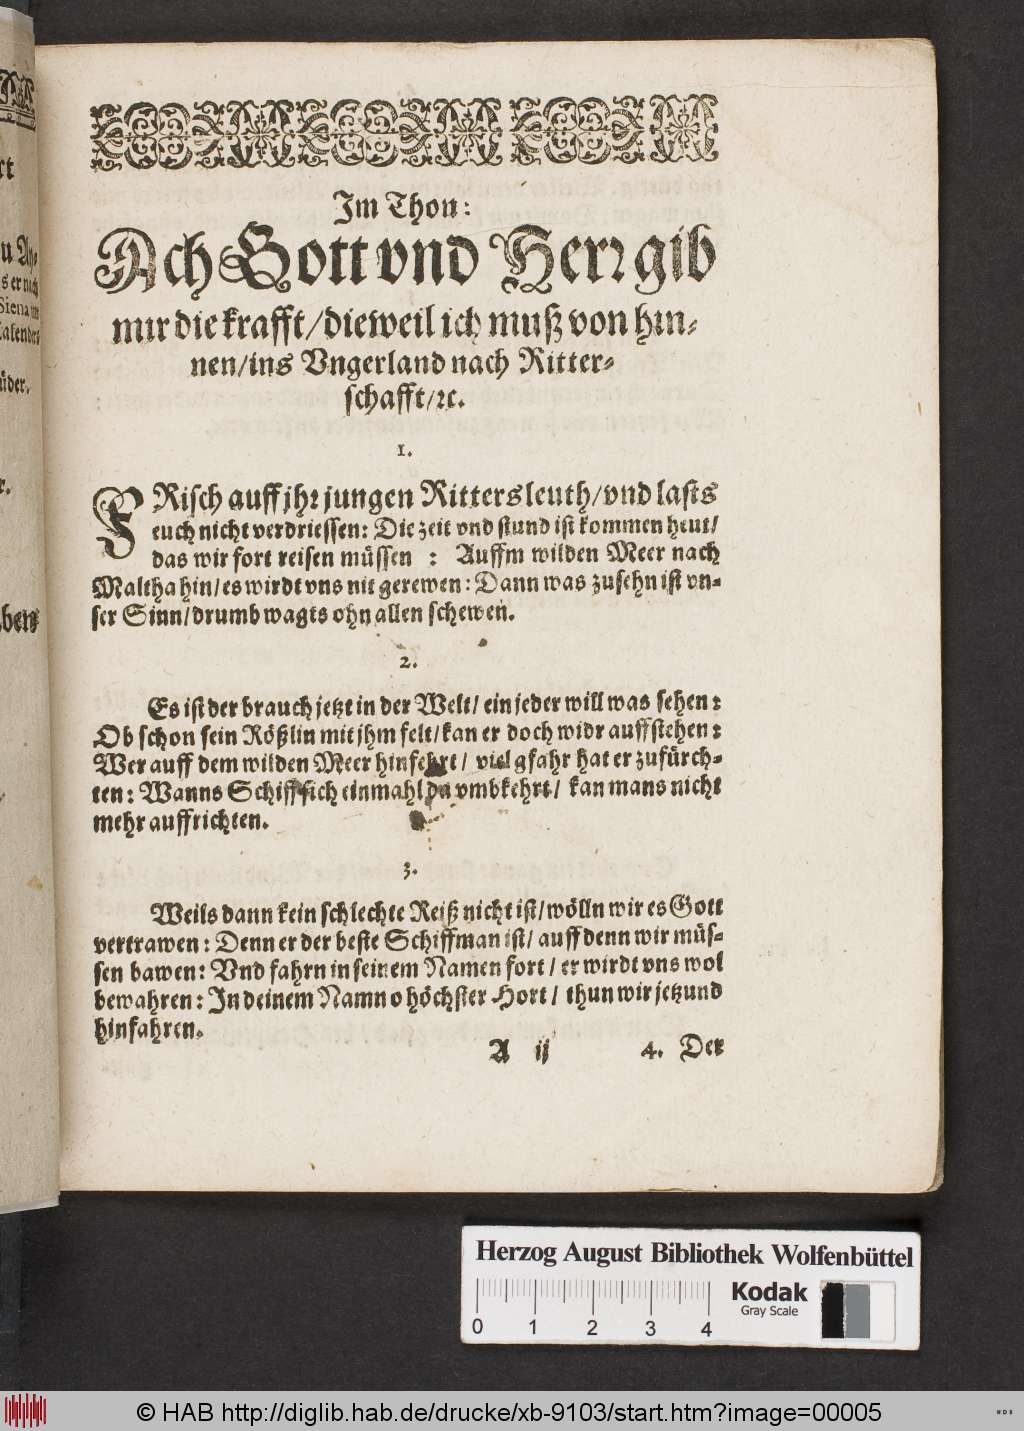 Im Thon:
Ach Gott vnd Herr gib
mir die krafft/dieweil ich muß von hin⸗
nen/ins Vngerland nach Ritter⸗
schafft/ꝛc.
1.
FRisch auff jhr jungen Rittersleuth/vnd lasts
euch nicht verdriessen: Die zeit vnd stund ist kommen heut/
das wir fort reisen müssen : Auffm wilden Meer nach
Maltha hin/es wirdt vns nit gerewen: Dann was zusehn ist vn⸗
ser Sinn/drumb wagts ohn allen schewen.
2.
Es ist der brauch jetzt in der Welt/ ein jeder will was sehen:
Ob schon sein Rößlin mit jhm felt/kan er doch widr auffstehen:
Wer auff dem wilden Meer hinfehrt/ viel gfahr hat er zufürch⸗
ten: Wanns Schiff sich einmahl da vmbkehrt/ kan mans nicht
mehr auffrichten.
3.
Weils dann kein schlechte Reiß nicht ist/wölln wir es Gott
vertrawen: Denn er der beste Schiffman ist/ auff denn wir müs⸗
sen bawen: Vnd fahrn in seinem Namen fort/ er wirdt vns wol
bewahren: In deinem Namn o höchster Hort/ thun wir jetzund
hinfahren.
A ij 4. Der
Herzog August Bibliothek Wolfenbüttel
0 1 2 3 4
Kodak
Gray Scale
© HAB http://diglib.hab.de/drucke/xb-9103/start.htm?image=00005